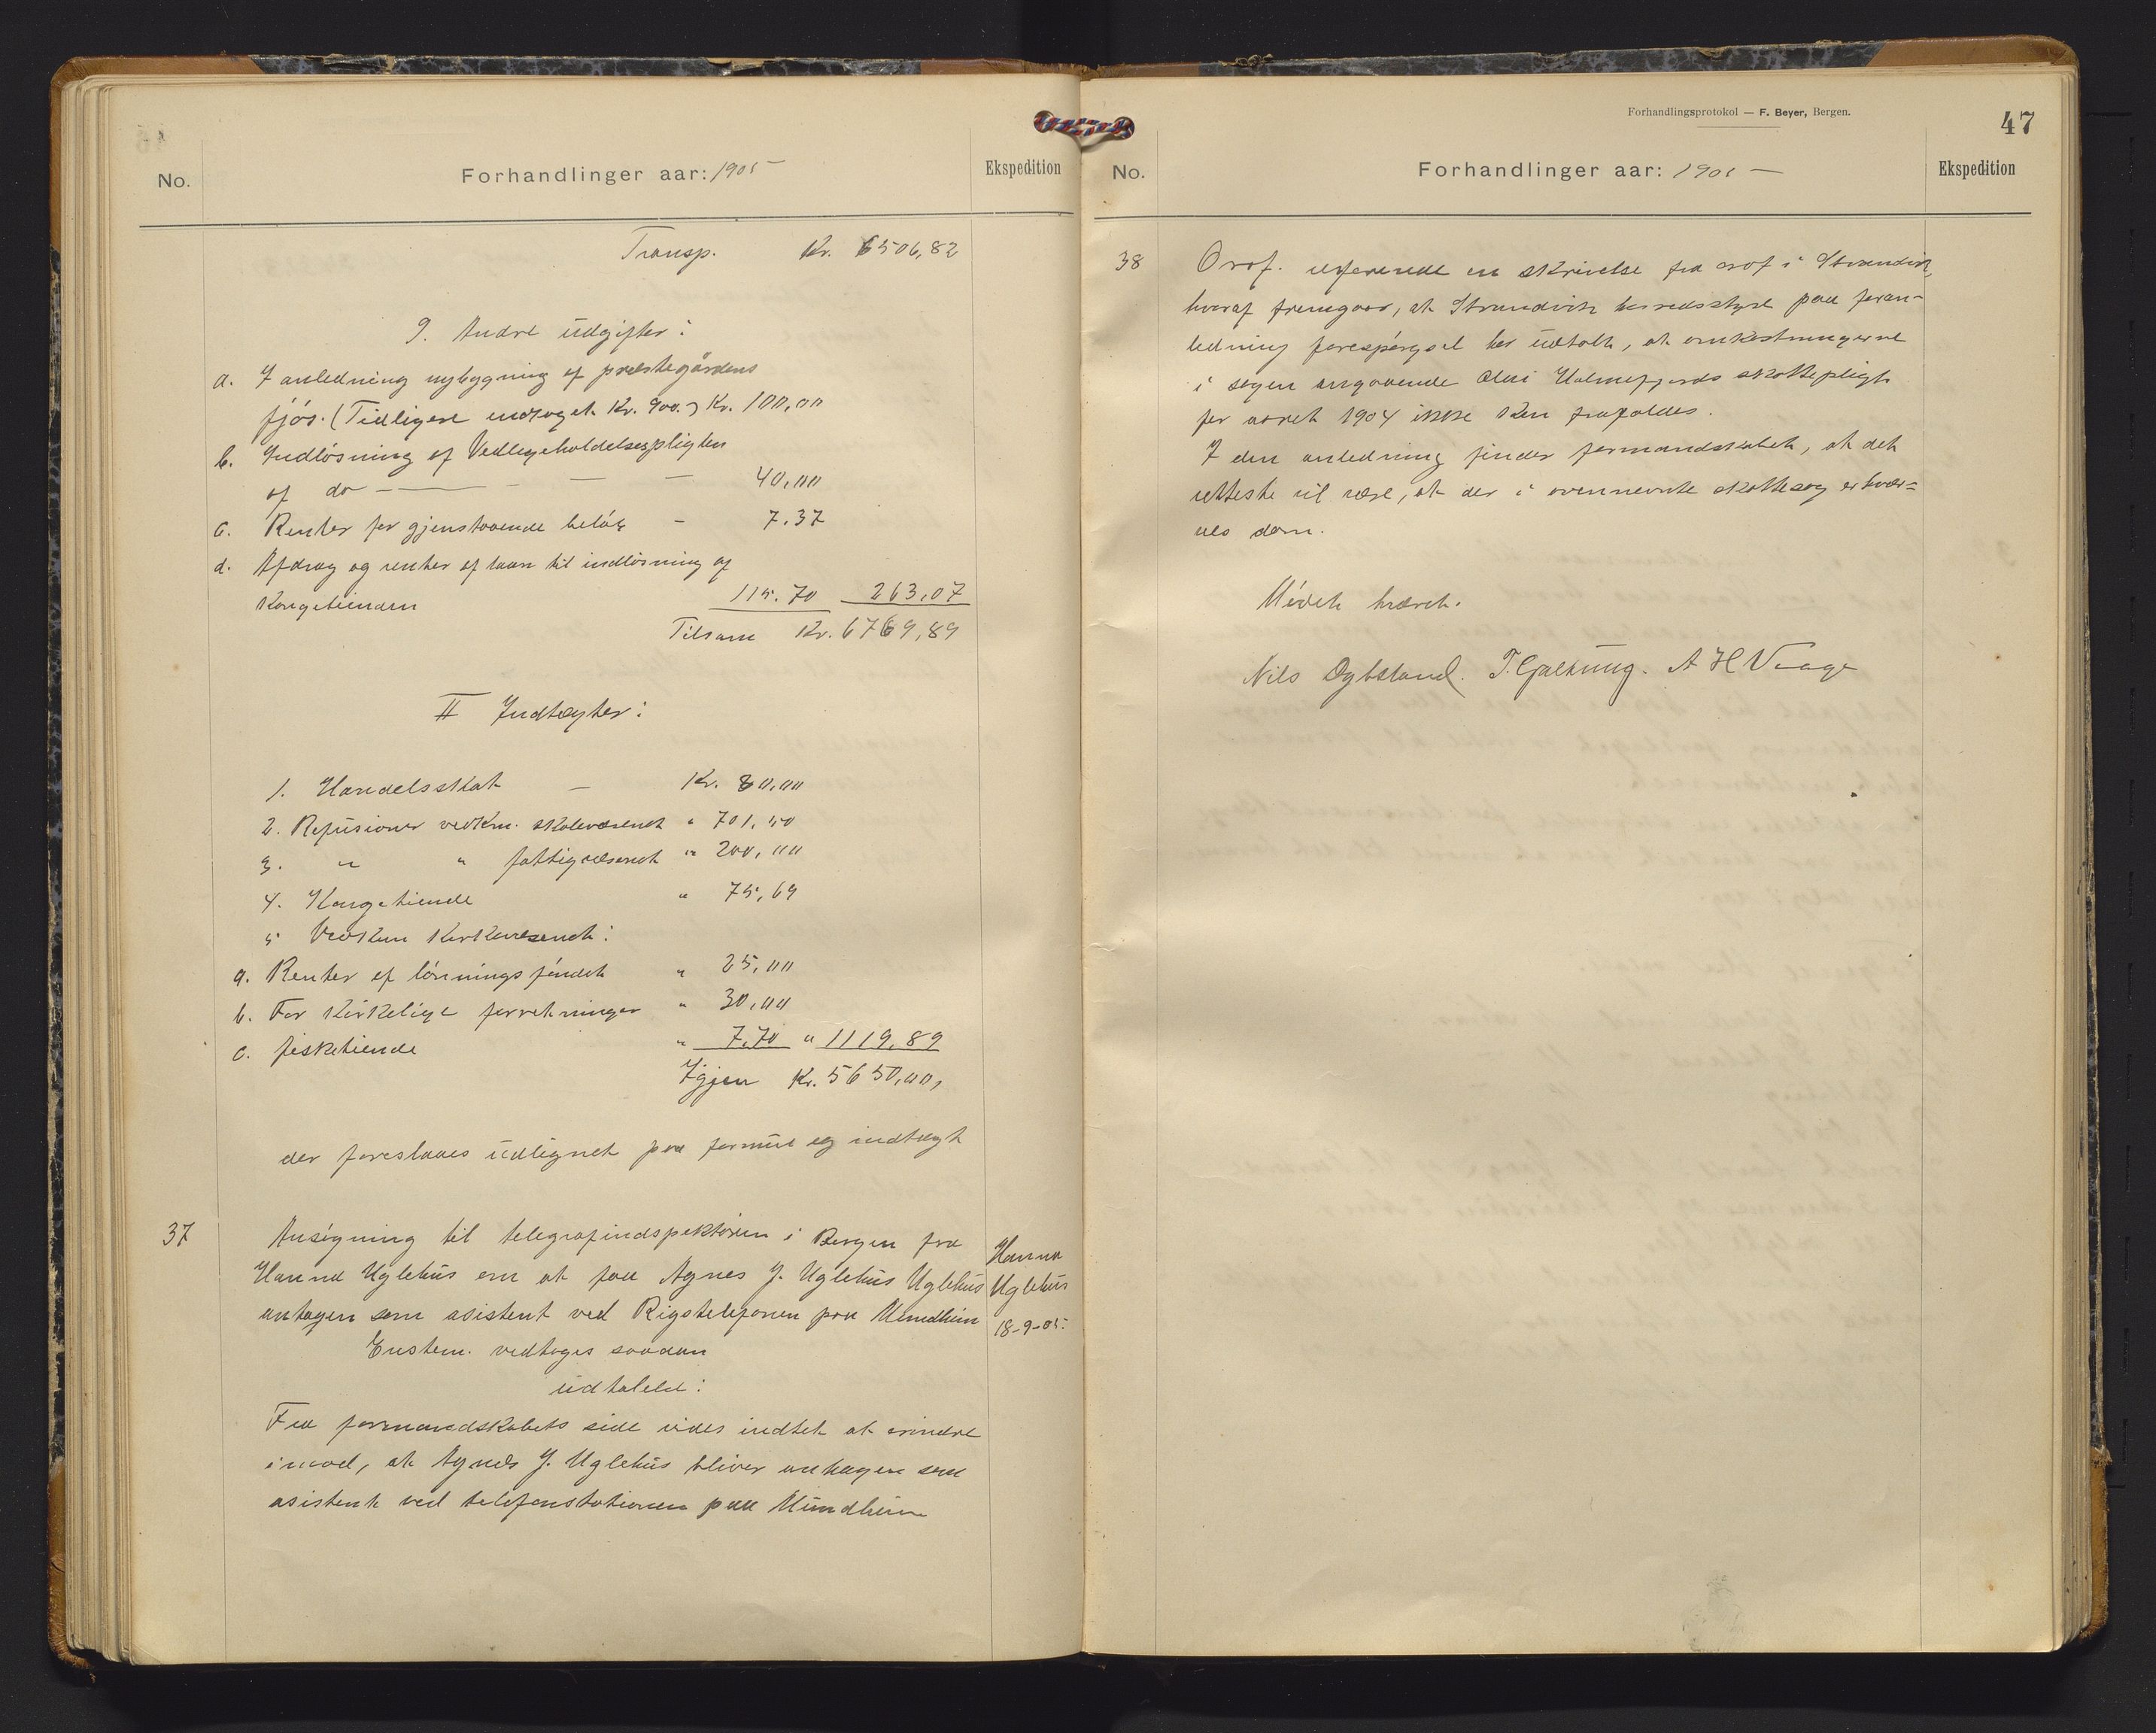 No.
Forhandlinger aar: 1905
Ekspedition
Transp. Kr. 6506,82
9. Andre udgifter:
a. I anledning nybygning af præstegårdens
fjös. (Tidligere undtaget Kr. 900.) Kr. 100,00
b. Indlösning af Vedligeholdelsespligten
af do — — — 40,00
c. Renter for gjenstaaende belöb - 7.37
d. Afdrag og renter af laan til indlösning af
Kongetienden 115.70 263,07
Tilsam Kr. 6769,89
II Indtægter:
1. Handelsskat — Kr. 80,00
2. Refusioner vedkm. skolevæsenet " 701,50
3. " " fattigvæsenet " 200,00
4. Kongetiende " 75,69
5 Vedkm Kirkevæsenet:
a. Renter af lönningsfondet " 25,00
b. For Kirkelige forretninger " 30,00
c. fisketiende " 7,70 " 1119,89
Igjen Kr. 5650,00,
der foreslaaes udlignet paa formue og indtægt
37
Ansögning til telegrafindspektören i Bergen fra
Hanna Uglehus om at faa Agnes J. Uglehus Uglehus
antagen som asistent ved Rigstelefonen paa Mundheim
Enstem. vedtoges saadan
udtalelse:
Fra formandskabets side vides indtet at erindre
imod, at Agnes J. Uglehus bliver antagen som
asistent ved telefonstationen paa Mundheim
Hanna
Uglehus
18-9-05.
Forhandlingsprotokol — F. Beyer, Bergen.
47
No.
Forhandlinger aar: 1905 —
Ekspedition
38
Ordf. refererede en skrivelse fra ordf i Strandvik,
hvoraf fremgaar, at Strandvik herredsstyre paa foran-
ledning forespörgsel har udtalt, at omkostningerne
i sagen angaaende Olai Holmefjords skattepligt
for aaret 1904 ikke kan frafaldes.
I den anledning finder formandskabet, at det
retteste vil være, at der i ovennevnte skattesag erhver=
ves dom.
Mödet hævet.
Nils Dybsland. T. Galtung. A H Vaage